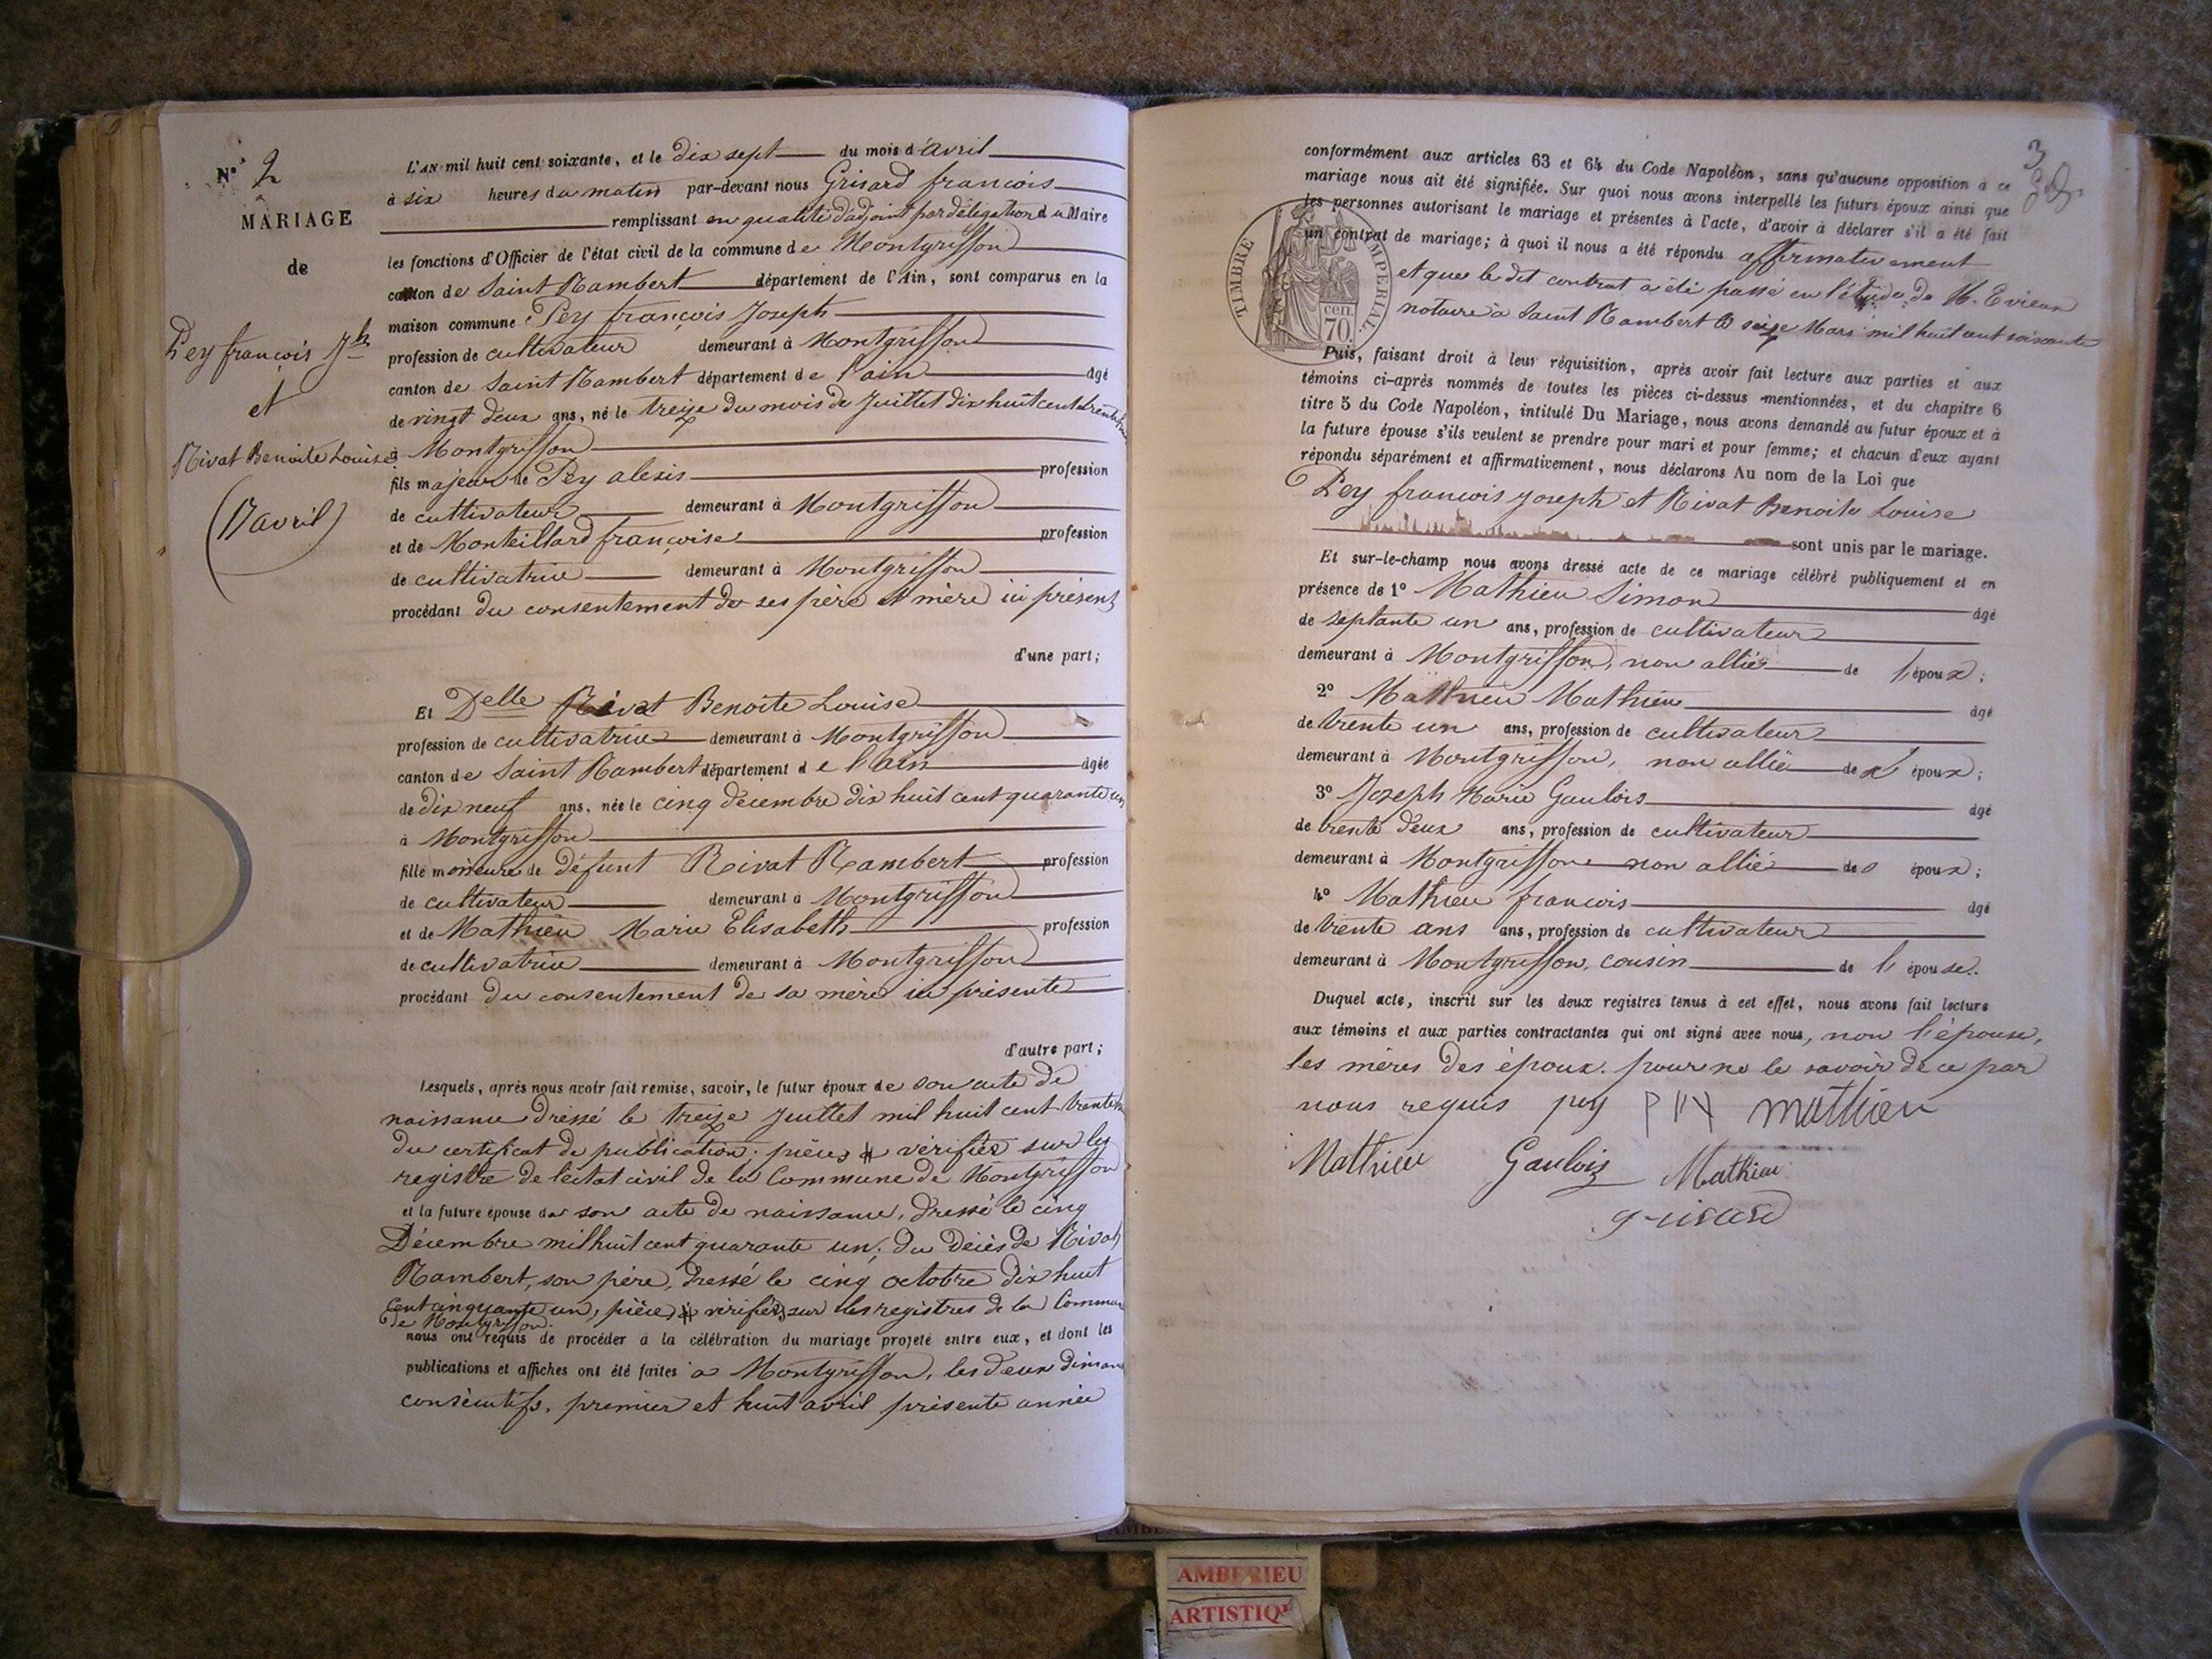 N° 2
MARIAGE
de
Pey françois Jh
et
Rivat Benoite Louise
(17 avril)
L'AN mil huit cent soixante, et le dix sept du mois d'avril
à six heures du matin par-devant nous Grisard françois
remplissant en qualité d'adjoint par délégation du Maire
les fonctions d'Officier de l'état civil de la commune de Montgriffon
canton de Saint Rambert département de l'Ain, sont comparus en la
maison commune Pey françois Joseph
profession de cultivateur demeurant à Montgriffon
canton de Saint Rambert département de l'ain âgé
de vingt deux ans, né le treize du mois de Juillet dix huit cent trente
à Montgriffon
fils majeur de Pey alexis profession
de cultivateur demeurant à Montgriffon
et de Monteillard françoise profession
de cultivatrice demeurant à Montgriffon
procédant du consentement de ses père et mère ici présents
d'une part;
Et Delle Rivat Benoite Louise
profession de cultivatrice demeurant à Montgriffon
canton de Saint Rambert département de l'ain âgée
de dix neuf ans, née le cinq décembre dix huit cent quarante un
à Montgriffon
fille mineure de défunt Rivat Rambert profession
de cultivateur demeurant à Montgriffon
et de Mathieu Marie Elisabeth profession
de cultivatrice demeurant à Montgriffon
procédant du consentement de sa mère ici présente
d'autre part;
Lesquels, après nous avoir fait remise, savoir, le futur époux de son acte de
naissance dressé le treize Juillet mil huit cent trente
du certificat de publication; pièces vérifiées sur les
registre de l'etat civil de la Commune de Montgriffon
et la future épouse de son acte de naissance, dressé le cinq
Décembre mil huit cent quarante un; du décès de Rivat
Rambert, son père, dressé le cinq octobre dix huit
cent cinquante un, pièces vérifiées sur les registres de la Commune
de Montgriffon.
nous ont requis de procéder à la célébration du mariage projeté entre eux, et dont les
publications et affiches ont été faites à Montgriffon, les deux diman
consécutifs, premier et huit avril présente année
3
conformément aux articles 63 et 64 du Code Napoléon, sans qu'aucune opposition à ce
mariage nous ait été signifiée. Sur quoi nous avons interpellé les futurs époux ainsi que
les personnes autorisant le mariage et présentes à l'acte, d'avoir à déclarer s'il a été fait
un contrat de mariage; à quoi il nous a été répondu affirmativement
et que le dit contrat a été passé en l'étude de M. Evieux
notaire à Saint Rambert le seize Mars mil huit cent soixante
TIMBRE IMPERIAL
70. cen.
Puis, faisant droit à leur réquisition, après avoir fait lecture aux parties et aux
témoins ci-après nommés de toutes les pièces ci-dessus mentionnées, et du chapitre 6
titre 5 du Code Napoléon, intitulé Du Mariage, nous avons demandé au futur époux et à
la future épouse s'ils veulent se prendre pour mari et pour femme; et chacun d'eux ayant
répondu séparément et affirmativement, nous déclarons Au nom de la Loi que
Pey francois Joseph et Rivat Benoite Louise
sont unis par le mariage.
Et sur-le-champ nous avons dressé acte de ce mariage célébré publiquement et en
présence de 1° Mathieu Simon âgé
de septante un ans, profession de cultivateur
demeurant à Montgriffon, non allié de l'époux;
2° Mathieu Mathieu âgé
de trente un ans, profession de cultivateur
demeurant à Montgriffon, non allié de l'époux;
3° Joseph Marie Gaulois âgé
de trente deux ans, profession de cultivateur
demeurant à Montgriffon non allié des époux;
4° Mathieu francois âgé
de trente ans ans, profession de cultivateur
demeurant à Montgriffon, cousin de l'épouse.
Duquel acte, inscrit sur les deux registres tenus à cet effet, nous avons fait lecture
aux témoins et aux parties contractantes qui ont signé avec nous, non l'épouse,
les mères des époux. pour ne le savoir de ce par
nous requis pey pey mathieu
Mathieu Gaulois Mathieu
grisard
AMBERIEU
ARTISTIQU